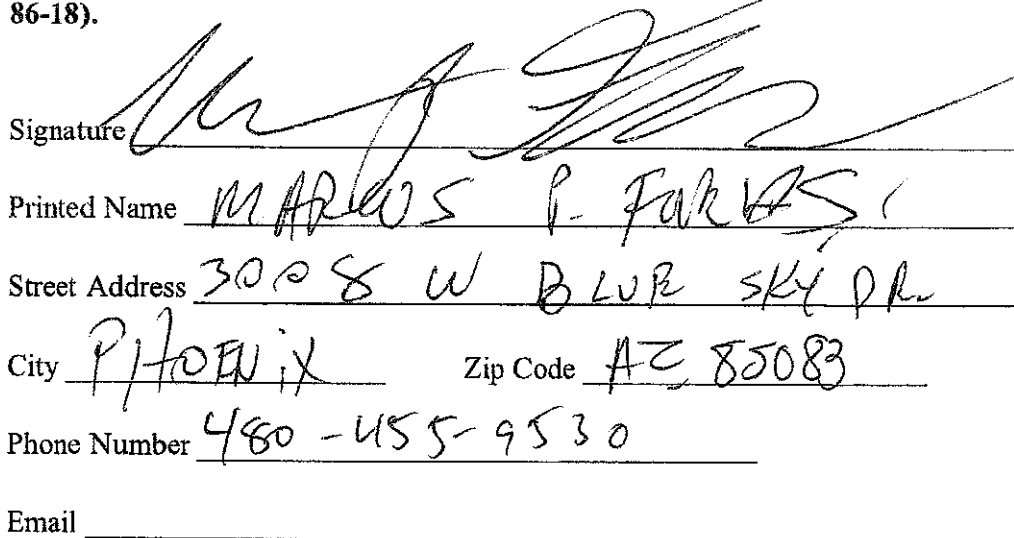 86-18).
Signature
Printed Name MARCUS P. FARKAS
Street Address 3008 W BLUE SKY DR.
City PHOENiX Zip Code AZ 85083
Phone Number 480-455-9530
Email